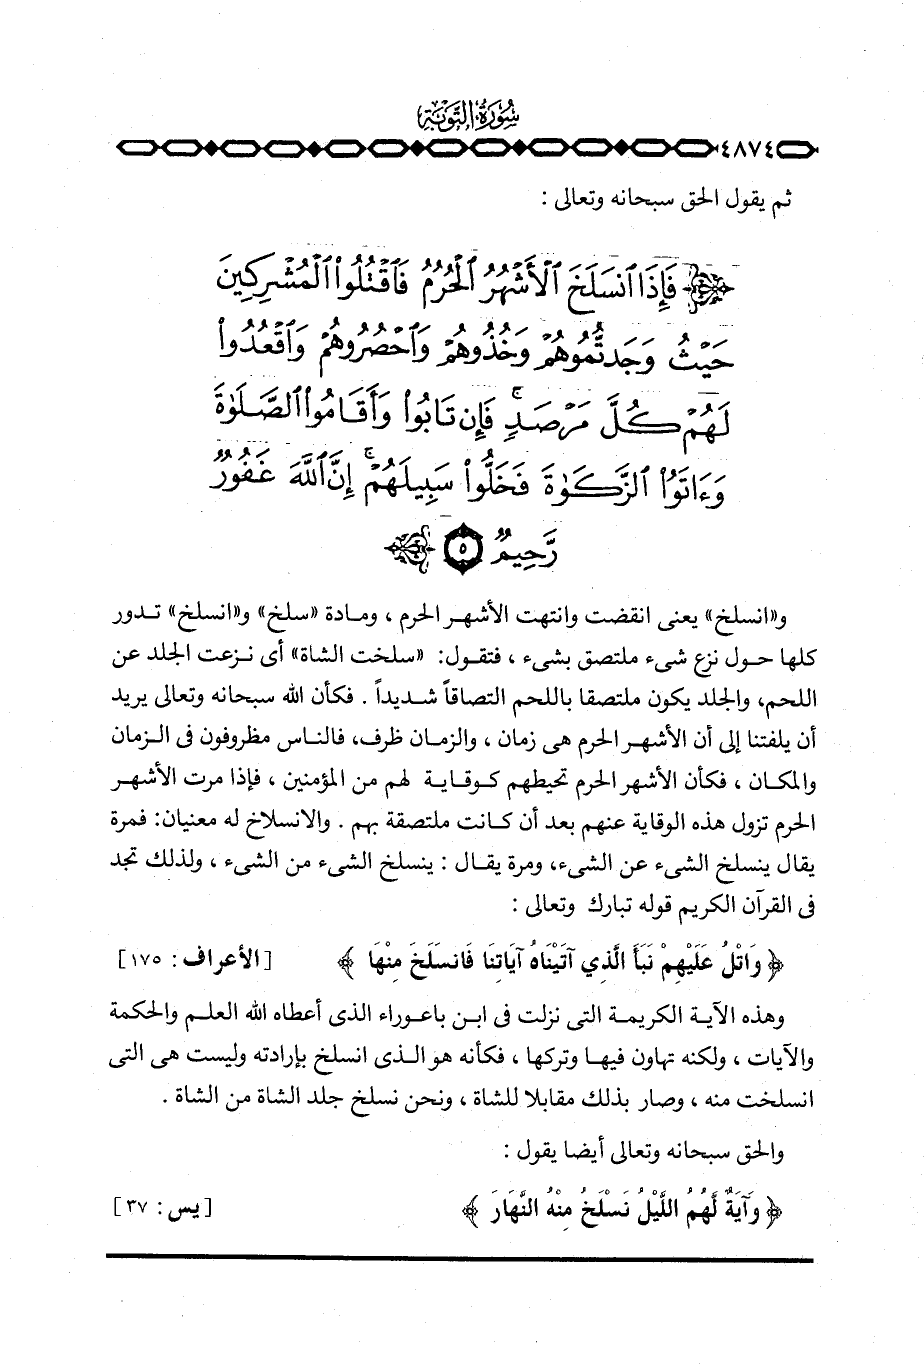 سُورَةُ التَّوْبَةِ
٤٨٧٤
ثم يقول الحق سبحانه وتعالى :
فَإِذَا ٱنسَلَخَ ٱلْأَشْهُرُ ٱلْحُرُمُ فَٱقْتُلُوا۟ ٱلْمُشْرِكِينَ
حَيْثُ وَجَدتُّمُوهُمْ وَخُذُوهُمْ وَٱحْصُرُوهُمْ وَٱقْعُدُوا۟
لَهُمْ كُلَّ مَرْصَدٍ ۚ فَإِن تَابُوا۟ وَأَقَامُوا۟ ٱلصَّلَوٰةَ
وَءَاتَوُا۟ ٱلزَّكَوٰةَ فَخَلُّوا۟ سَبِيلَهُمْ ۚ إِنَّ ٱللَّهَ غَفُورٌ
رَّحِيمٌ ٥
و«انسلخ» يعنى انقضت وانتهت الأشهر الحرم ، ومادة «سلخ» و«انسلخ» تدور
كلها حول نزع شىء ملتصق بشىء ، فتقول: «سلخت الشاة» أى نزعت الجلد عن
اللحم، والجلد يكون ملتصقا باللحم التصاقاً شديداً . فكأن الله سبحانه وتعالى يريد
أن يلفتنا إلى أن الأشهر الحرم هى زمان ، والزمان ظرف، فالناس مظروفون فى الزمان
والمكان ، فكأن الأشهر الحرم تحيطهم كوقاية لهم من المؤمنين ، فإذا مرت الأشهر
الحرم تزول هذه الوقاية عنهم بعد أن كانت ملتصقة بهم . والانسلاخ له معنيان: فمرة
يقال ينسلخ الشىء عن الشىء، ومرة يقال : ينسلخ الشىء من الشىء ، ولذلك تجد
فى القرآن الكريم قوله تبارك وتعالى :
﴿ وَاتْلُ عَلَيْهِمْ نَبَأَ الَّذِي آتَيْنَاهُ آيَاتِنَا فَانسَلَخَ مِنْهَا ﴾ [الأعراف: ١٧٥]
وهذه الآية الكريمة التى نزلت فى ابن باعوراء الذى أعطاه الله العلم والحكمة
والآيات ، ولكنه تهاون فيها وتركها ، فكأنه هو الذى انسلخ بإرادته وليست هى التى
انسلخت منه ، وصار بذلك مقابلا للشاة ، ونحن نسلخ جلد الشاة من الشاة .
والحق سبحانه وتعالى أيضا يقول :
﴿ وَآيَةٌ لَّهُمُ اللَّيْلُ نَسْلَخُ مِنْهُ النَّهَارَ ﴾ [يس: ٣٧]